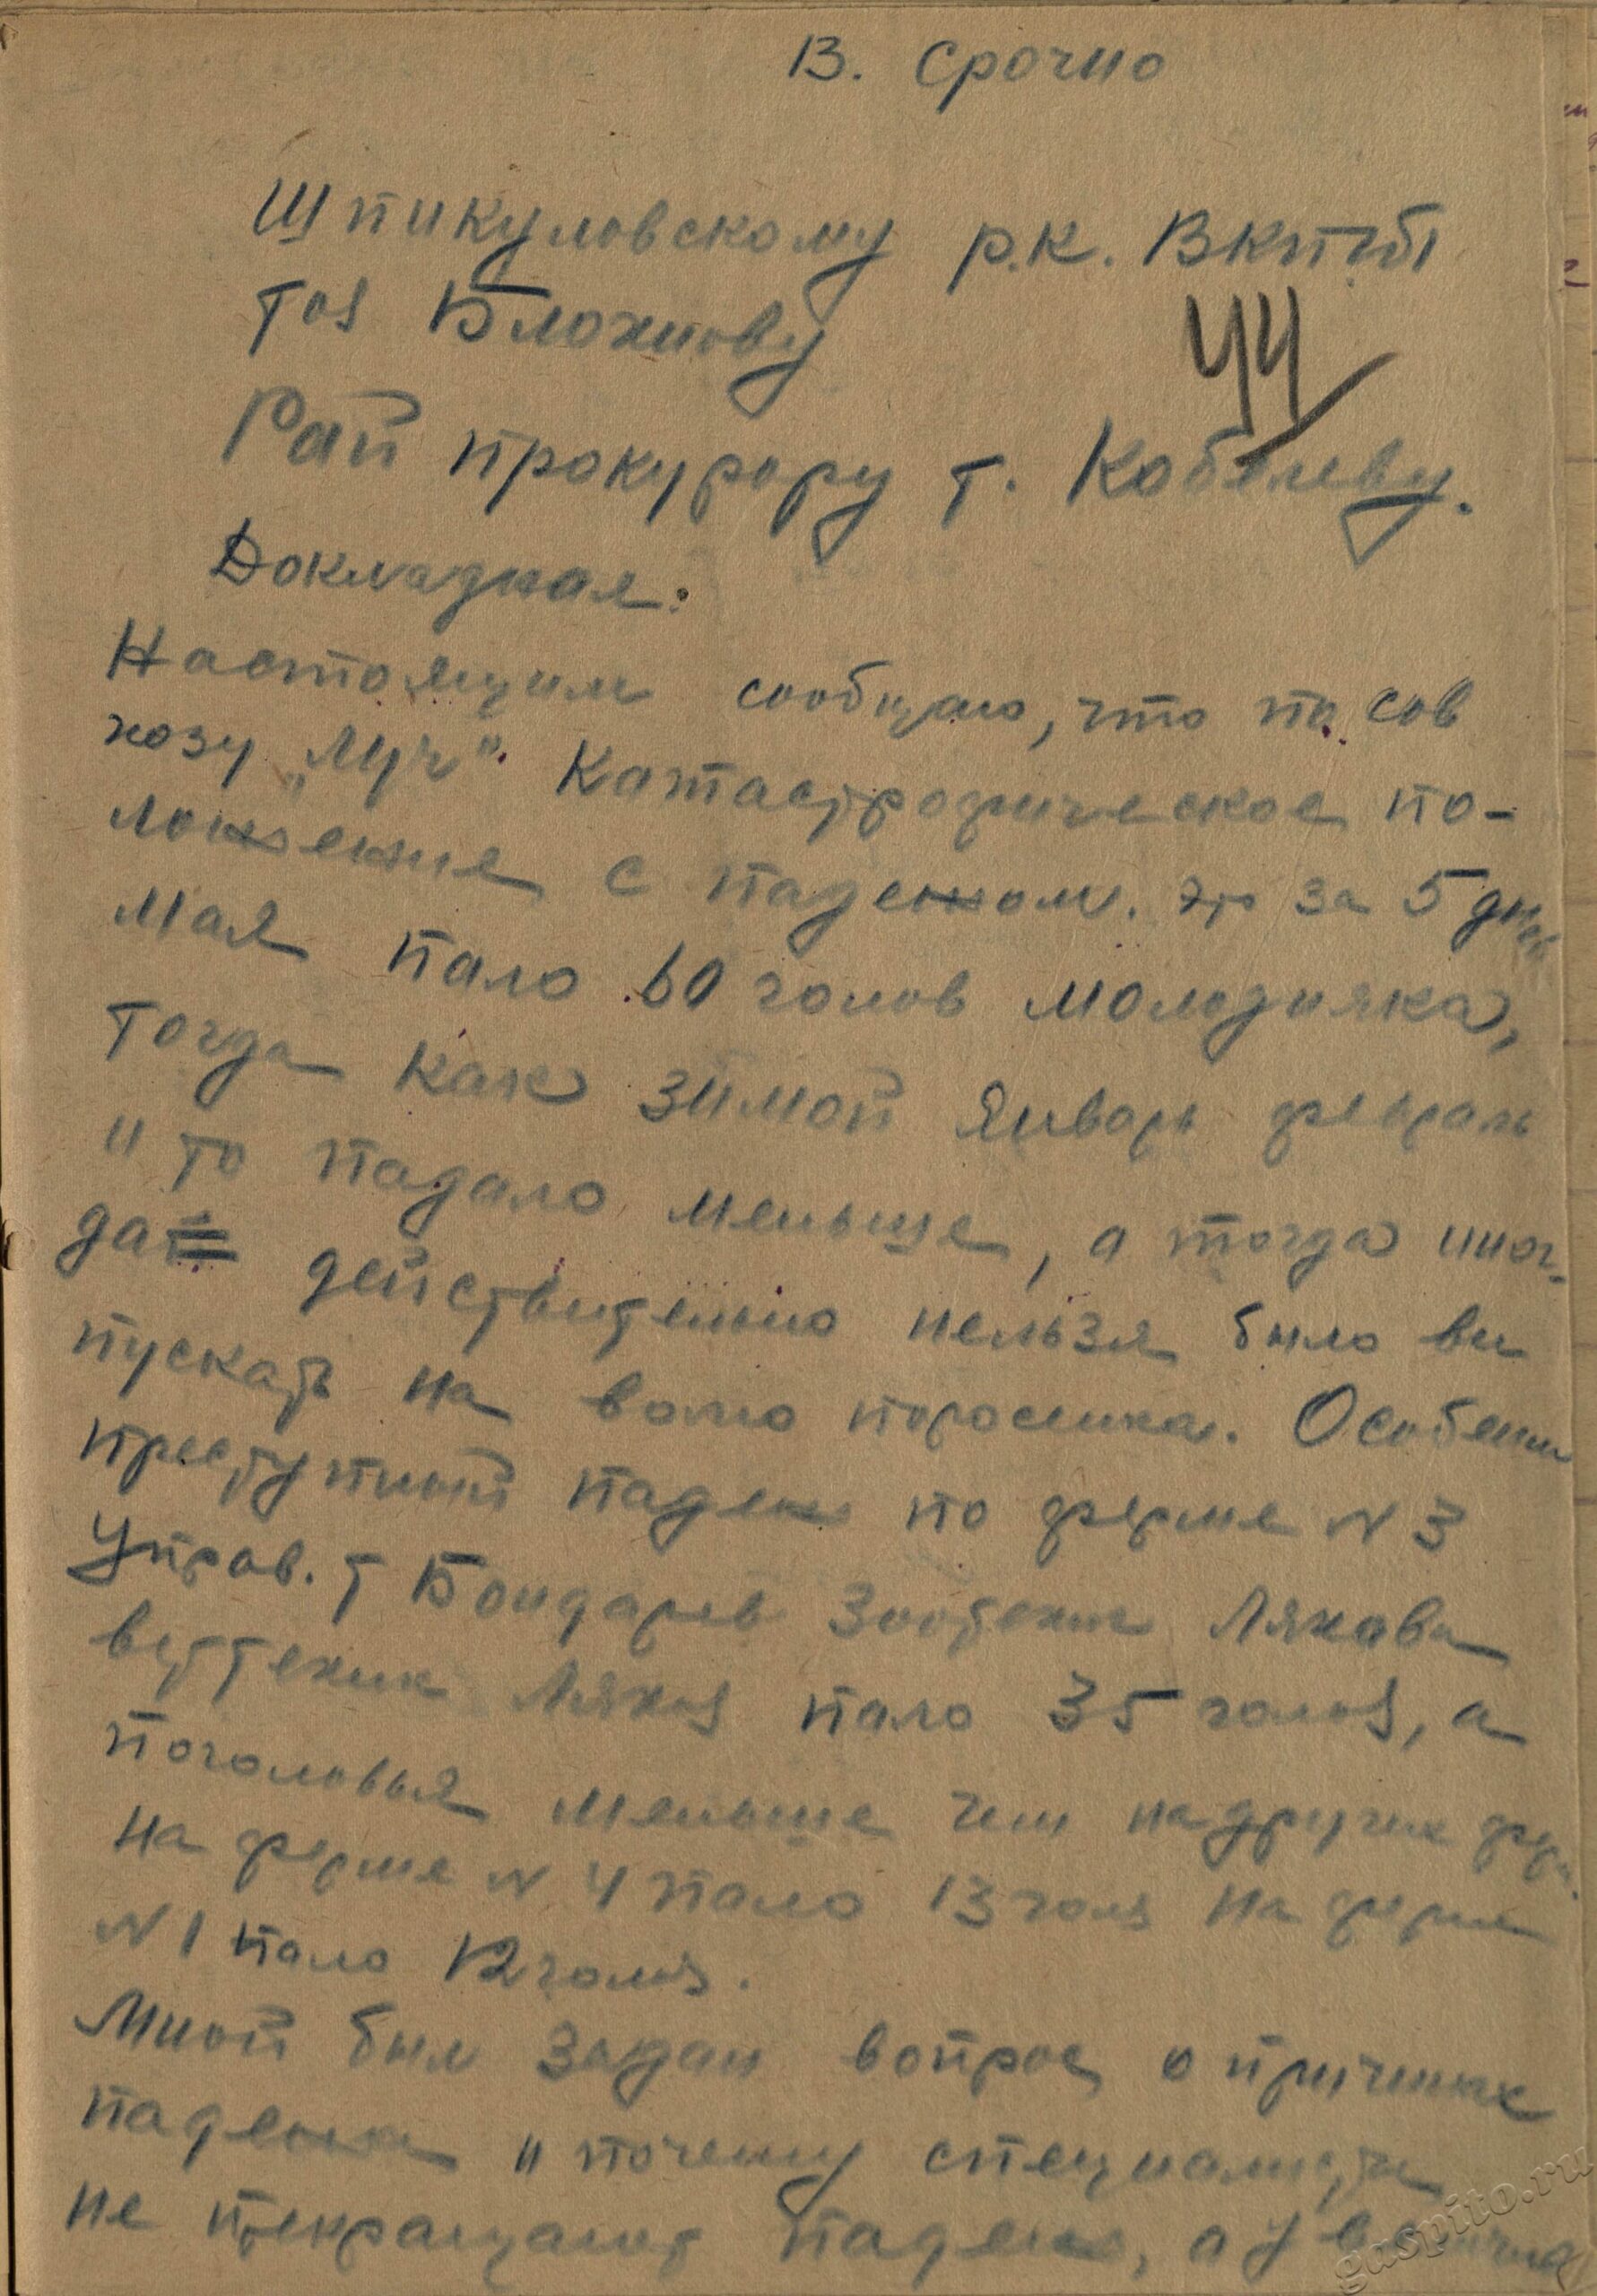 В. Срочно
Шпикуловскому р.к. ВКП(б)
тов Блохнову
44
Рай прокурору т. Кобелеву.
Докладная:
Настоящим сообщаю, что по сов
хозу „Луч" Катастрофическое по-
ложение с падежом. за 5 дней
мая пало 60 голов молодняка,
тогда как зимой Январь февраль
и то падало меньше, а тогда иног-
да действительно нельзя было вы
пускать на волю поросенка. Особенно
преступный падеж по ферме N 3
Управ. т Бондарев Зоотехник Ляхова
веттехник Ляхов пало 35 голов, а
поголовья меньше чем на других фер.
На ферме N 4 пало 13 голов На ферме
N 1 пало 12 голов.
Мной был задан вопрос о причинах
падежа и почему специалисты
не прекращают падеж, а
guspito.ru